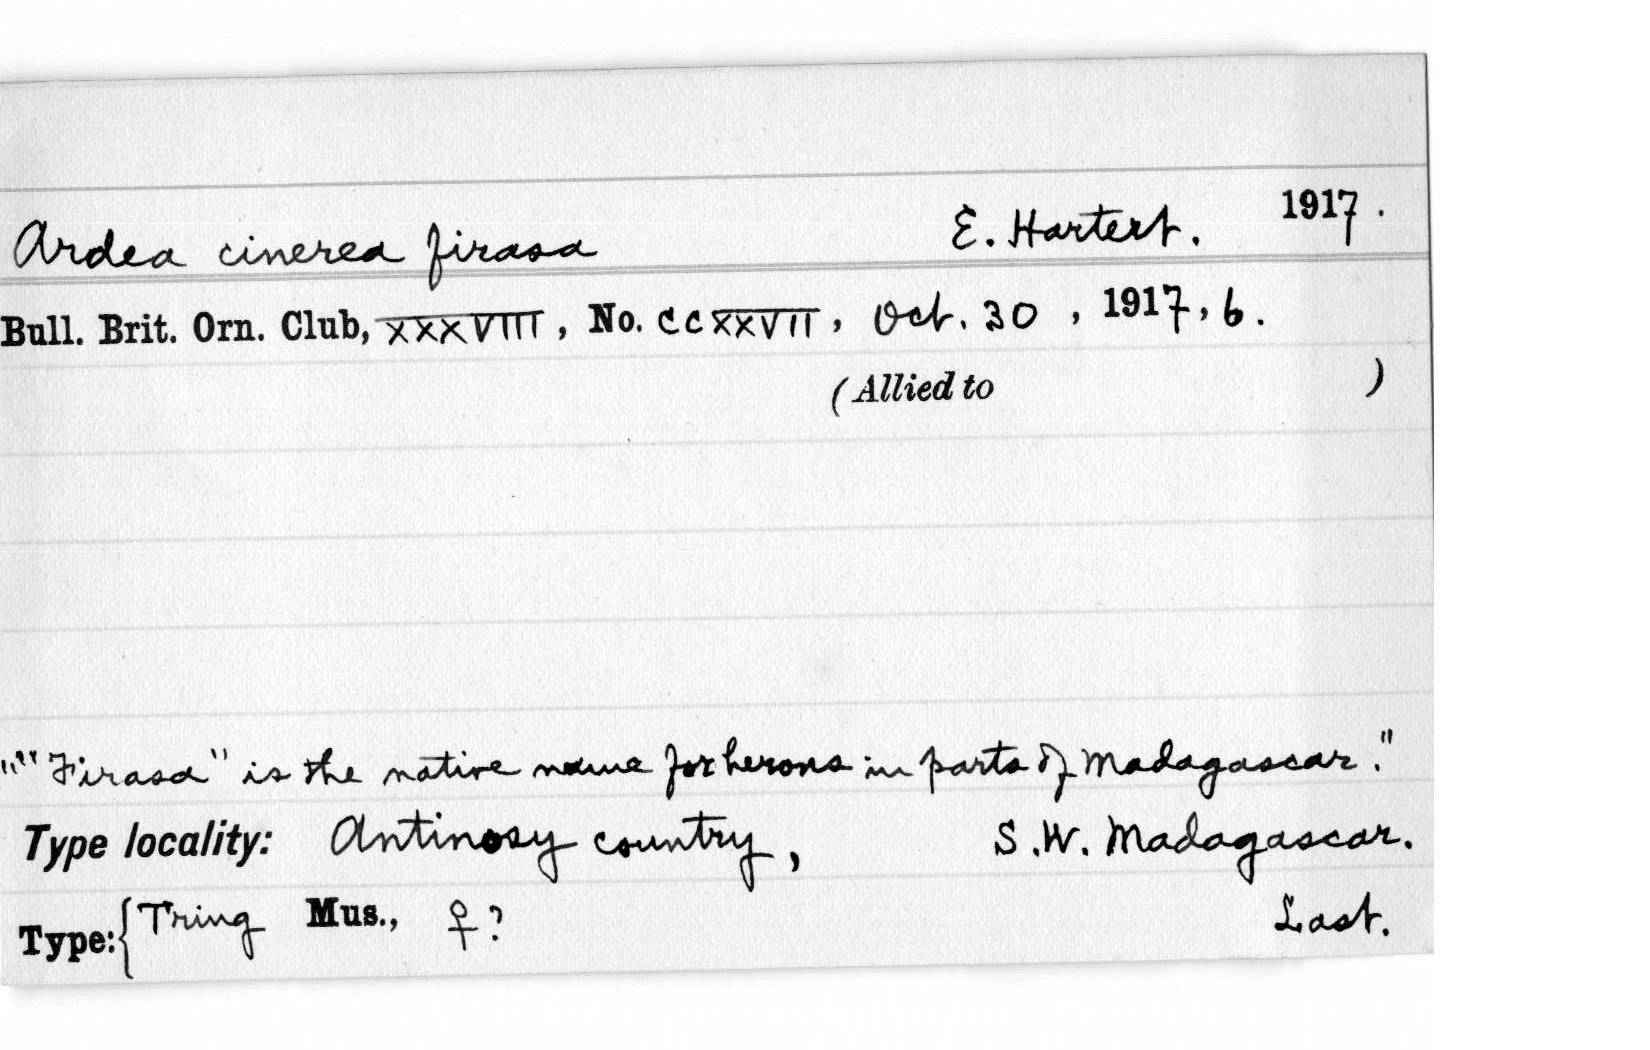 Ardea cinerea firasa E. Hartert. 1917.
Bull. Brit. Orn. Club, XXXVIII, No. CCXXVII, Oct. 30, 1917, 6.
(Allied to )
""Firasa" is the native name for herons in parts of Madagascar."
Type locality: Antinosy country, S.W. Madagascar.
Type: { Tring Mus., ♀? Last.